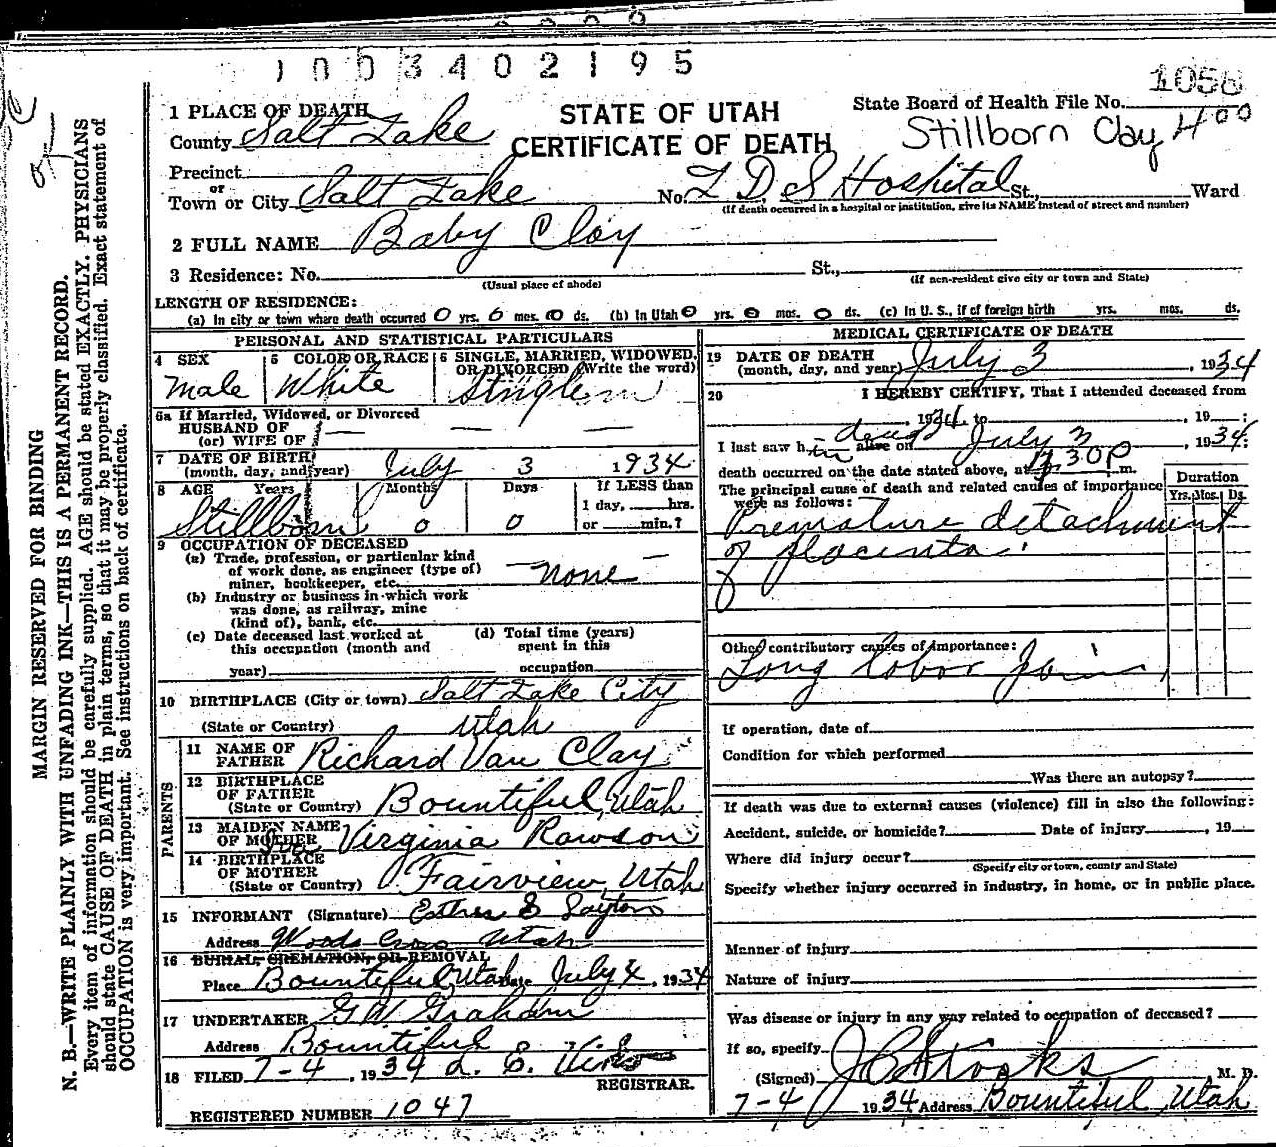 1003402195
1 PLACE OF DEATH
County Salt Lake
STATE OF UTAH
CERTIFICATE OF DEATH
State Board of Health File No. 1058
Stillborn Clay 400
Precinct
or
Town or City Salt Lake No. L D S Hospital St., Ward
(If death occurred in a hospital or institution, give its NAME instead of street and number)
2 FULL NAME Baby Clay
3 Residence: No. St.,
(Usual place of abode) (If non-resident give city or town and State)
LENGTH OF RESIDENCE:
(a) In city or town where death occurred 0 yrs. 0 mos. 0 ds. (b) In Utah 0 yrs. 0 mos. 0 ds. (c) In U. S., if of foreign birth yrs. mos. ds.
PERSONAL AND STATISTICAL PARTICULARS
4 SEX 5 COLOR OR RACE 6 SINGLE, MARRIED, WIDOWED,
OR DIVORCED (Write the word)
Male White Single
6a If Married, Widowed, or Divorced
HUSBAND OF
(or) WIFE OF
7 DATE OF BIRTH
(month, day, and year) July 3 1934
8 AGE Years Months Days If LESS than
1 day, hrs.
Stillborn 0 0 or min.?
9 OCCUPATION OF DECEASED
(a) Trade, profession, or particular kind
of work done, as engineer (type of)
miner, bookkeeper, etc. none
(b) Industry or business in which work
was done, as railway, mine
(kind of), bank, etc.
(c) Date deceased last worked at
this occupation (month and
year)
(d) Total time (years)
spent in this
occupation
10 BIRTHPLACE (City or town) Salt Lake City
(State or Country) Utah
PARENTS
11 NAME OF
FATHER Richard Van Clay
12 BIRTHPLACE
OF FATHER
(State or Country) Bountiful, Utah
13 MAIDEN NAME
OF MOTHER Virginia Rawson
14 BIRTHPLACE
OF MOTHER
(State or Country) Fairview, Utah
15 INFORMANT (Signature) Esther E Layton
Address Woods Cross Utah
16 BURIAL, CREMATION, OR REMOVAL
Place Bountiful, Utah Date July 4, 1934
17 UNDERTAKER G W Graham
Address Bountiful
18 FILED 7-4, 1934
REGISTRAR.
REGISTERED NUMBER 1047
MEDICAL CERTIFICATE OF DEATH
19 DATE OF DEATH
(month, day, and year) July 3, 1934
20 I HEREBY CERTIFY, That I attended deceased from
, 1934, to , 19
I last saw him dead alive on July 3, 1934
death occurred on the date stated above, at 30 P m.
The principal cause of death and related causes of importance
were as follows:
Duration
Yrs. Mos. Ds.
Premature detachment
of placenta.
Other contributory causes of importance:
Long labor
If operation, date of
Condition for which performed
Was there an autopsy?
If death was due to external causes (violence) fill in also the following:
Accident, suicide, or homicide? Date of injury , 19
Where did injury occur?
(Specify city or town, county and State)
Specify whether injury occurred in industry, in home, or in public place.
Manner of injury
Nature of injury
Was disease or injury in any way related to occupation of deceased?
If so, specify
(Signed) J C Stocks, M. D.
7-4 1934 Address Bountiful, Utah
MARGIN RESERVED FOR BINDING
N. B.—WRITE PLAINLY WITH UNFADING INK—THIS IS A PERMANENT RECORD.
Every item of information should be carefully supplied. AGE should be stated EXACTLY. PHYSICIANS
should state CAUSE OF DEATH in plain terms, so that it may be properly classified. Exact statement of
OCCUPATION is very important. See instructions on back of certificate.